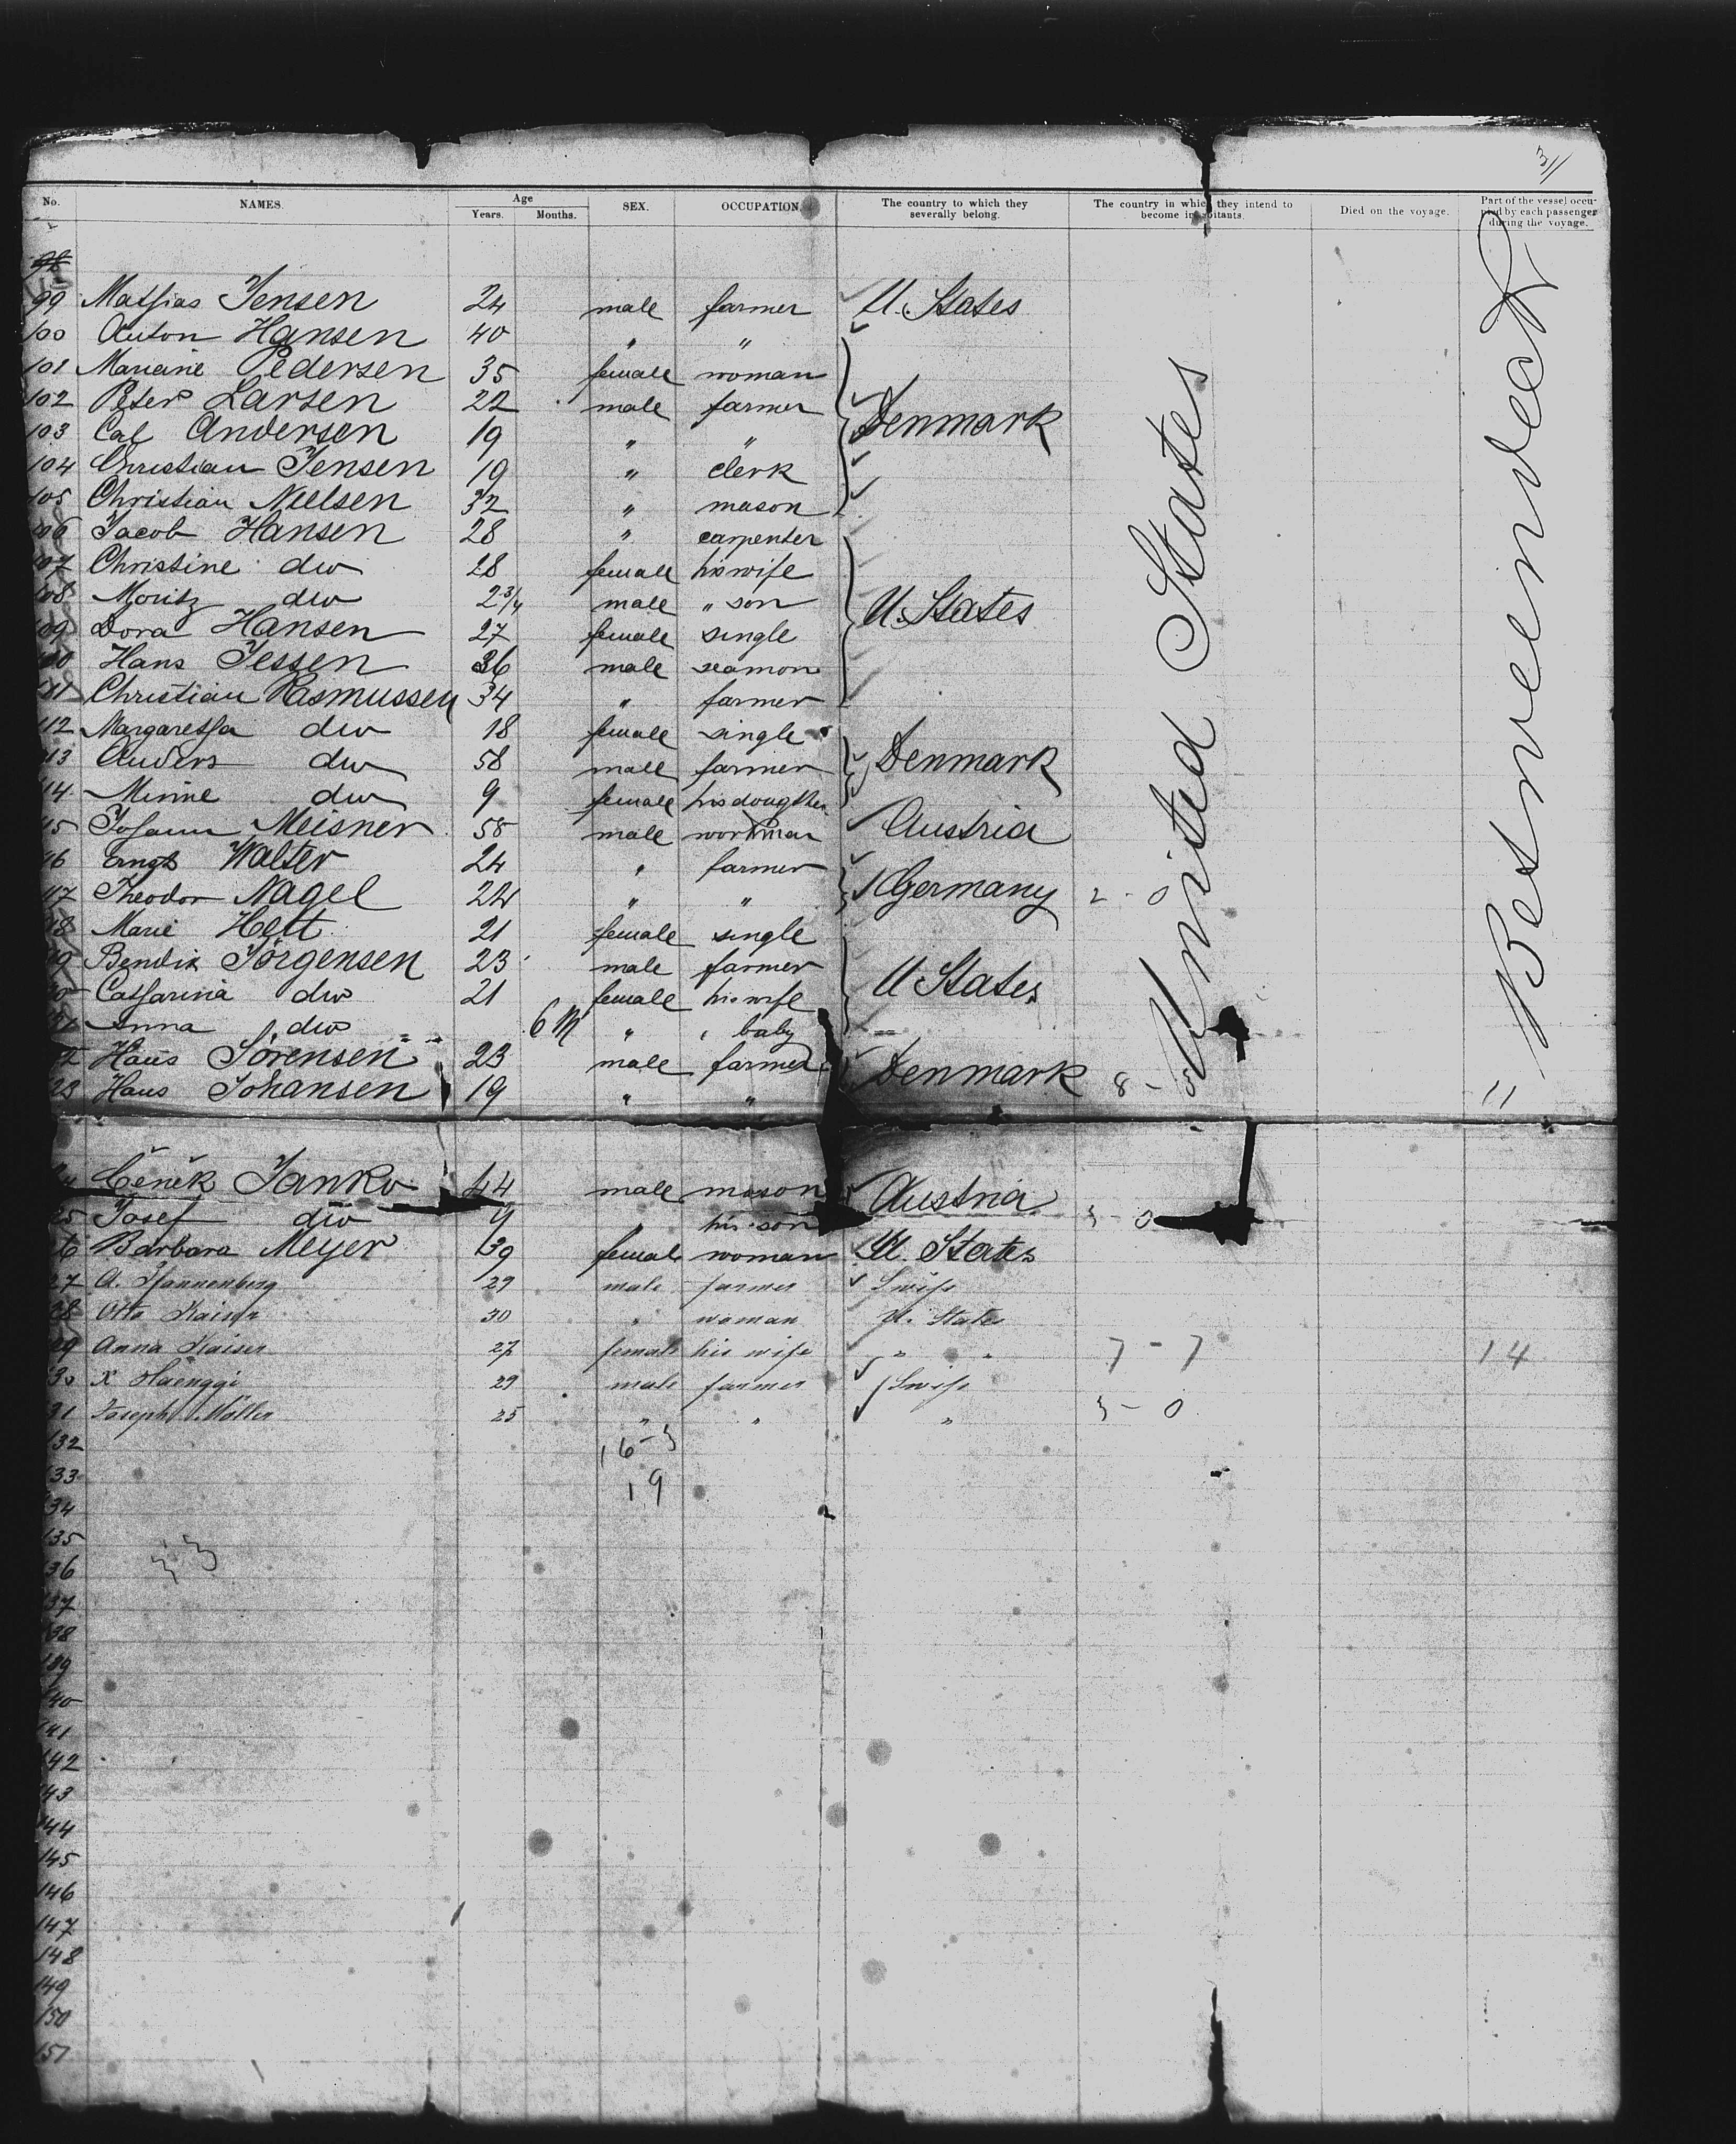 31
No. NAMES. Age Years. Months. SEX. OCCUPATION. The country to which they severally belong. The country in which they intend to become inhabitants. Died on the voyage. Part of the vessel occupied by each passenger during the voyage.
98
99 Mathias Jensen 24 male farmer U. States
100 Anton Hansen 40 " "
101 Mariane Pedersen 35 female woman
102 Peter Larsen 22 male farmer Denmark
103 Cal Andersen 19 " "
104 Christian Jensen 19 " clerk
105 Christian Nielsen 32 " mason
106 Jacob Hansen 28 " carpenter
107 Christine dw 28 female his wife
108 Moritz dw 2 3/4 male " son U. States
109 Dora Hansen 27 female single
110 Hans Jessen 36 male seamon
111 Christian Rasmussen 34 " farmer
112 Margaretha dw 18 female single
113 Anders dw 58 male farmer Denmark
114 Minne dw 9 female his dougther
115 Johann Meisner 58 male workman Austria
116 Ernst Walter 24 " farmer
117 Theodor Nagel 24 " " Germany 2 - 0
118 Marie Hett 21 female single
119 Bendix Jörgensen 23 male farmer U States
120 Catharina dw 21 female his wife
121 Anna dw 6 M " " baby
122 Hans Sörensen 23 male farmer
123 Hans Johansen 19 " " Denmark 8 -
United States
Between deck
11
Čeněk Janko 44 male mason Austria
25 Josef dw 9 " his son 3 - 0
26 Barbara Meyer 39 female woman U. States
27 A. Pfannenberg 29 male farmer Swiss
28 Otto Kaiser 30 " woman U. States
29 Anna Kaiser 27 female his wife " " 7 - 7 14
30 X Haenggi 29 male farmer Swiss
31 Joseph Müller 25 " " " 3 - 0
132 16-3
133 19
134
135
136 33
137
138
139
140
141
142
143
144
145
146
147
148
149
150
151